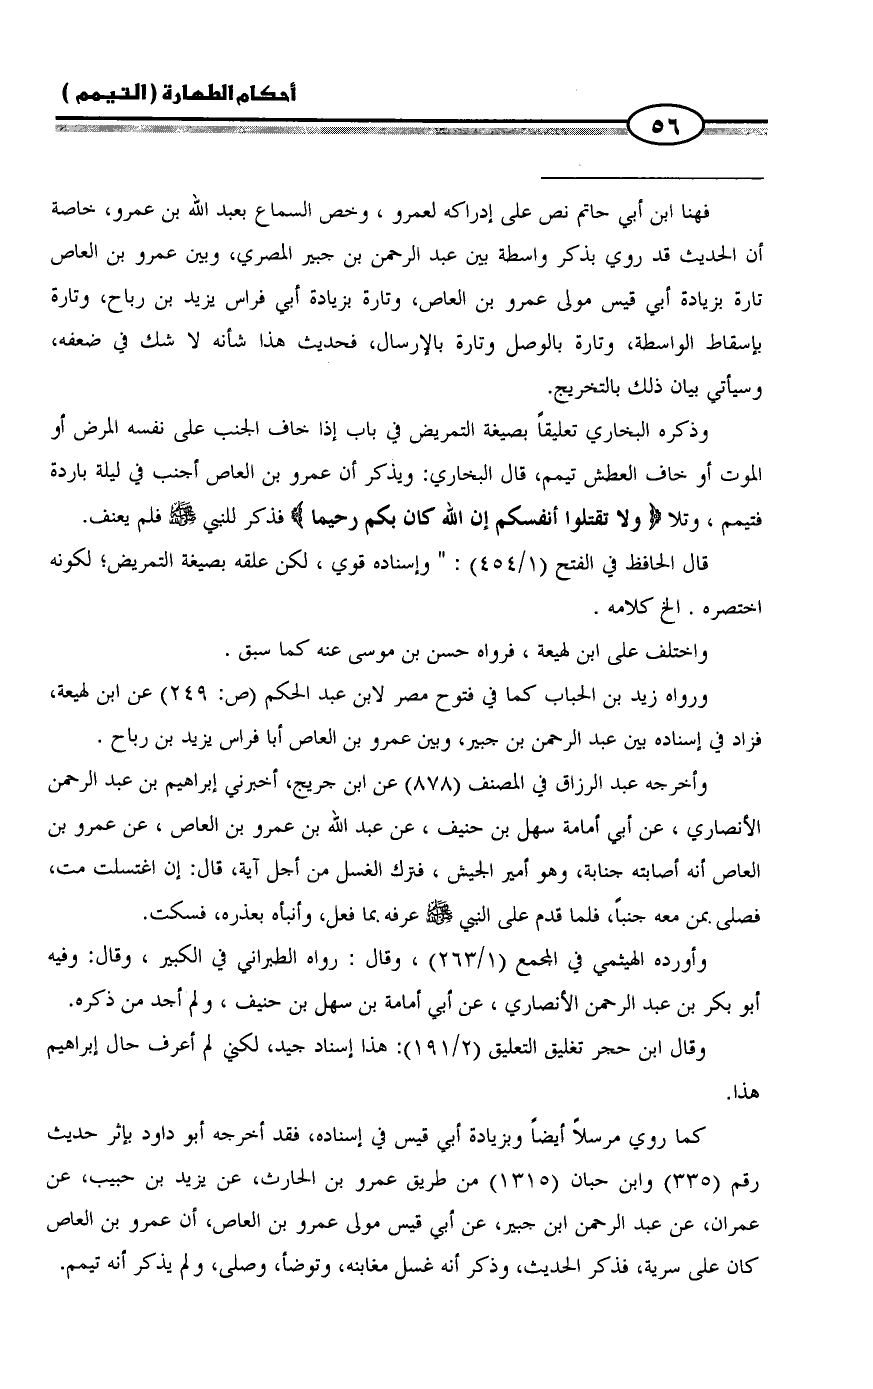 أحكام الطهارة ( التيمم )
٥٦
فهنا ابن أبي حاتم نص على إدراكه لعمرو ، وخص السماع بعبد الله بن عمرو، خاصة
أن الحديث قد روي بذكر واسطة بين عبد الرحمن بن جبير المصري، وبين عمرو بن العاص
تارة بزيادة أبي قيس مولى عمرو بن العاص، وتارة بزيادة أبي فراس يزيد بن رباح، وتارة
بإسقاط الواسطة، وتارة بالوصل وتارة بالإرسال، فحديث هذا شأنه لا شك في ضعفه،
وسيأتي بيان ذلك بالتخريج.
وذكره البخاري تعليقاً بصيغة التمريض في باب إذا خاف الجنب على نفسه المرض أو
الموت أو خاف العطش تيمم، قال البخاري: ويذكر أن عمرو بن العاص أجنب في ليلة باردة
فتيمم ، وتلا ﴿ ولا تقتلوا أنفسكم إن الله كان بكم رحيما ﴾ فذكر للنبي ﷺ فلم يعنف.
قال الحافظ في الفتح (٤٥٤/١) : " وإسناده قوي ، لكن علقه بصيغة التمريض؛ لكونه
اختصره . الخ كلامه .
واختلف على ابن لهيعة ، فرواه حسن بن موسى عنه كما سبق .
ورواه زيد بن الحباب كما في فتوح مصر لابن عبد الحكم (ص: ٢٤٩) عن ابن لهيعة،
فزاد في إسناده بين عبد الرحمن بن جبير، وبين عمرو بن العاص أبا فراس يزيد بن رباح .
وأخرجه عبد الرزاق في المصنف (٨٧٨) عن ابن جريج، أخبرني إبراهيم بن عبد الرحمن
الأنصاري ، عن أبي أمامة سهل بن حنيف ، عن عبد الله بن عمرو بن العاص ، عن عمرو بن
العاص أنه أصابته جنابة، وهو أمير الجيش ، فترك الغسل من أجل آية، قال: إن اغتسلت مت،
فصلى بمن معه جنباً، فلما قدم على النبي ﷺ عرفه بما فعل، وأنبأه بعذره، فسكت.
وأورده الهيثمي في المجمع (٢٦٣/١) ، وقال : رواه الطبراني في الكبير ، وقال: وفيه
أبو بكر بن عبد الرحمن الأنصاري ، عن أبي أمامة بن سهل بن حنيف ، ولم أجد من ذكره.
وقال ابن حجر تغليق التعليق (١٩١/٢): هذا إسناد جيد، لكني لم أعرف حال إبراهيم
هذا.
كما روي مرسلاً أيضاً وبزيادة أبي قيس في إسناده، فقد أخرجه أبو داود بإثر حديث
رقم (٣٣٥) وابن حبان (١٣١٥) من طريق عمرو بن الحارث، عن يزيد بن حبيب، عن
عمران، عن عبد الرحمن ابن جبير، عن أبي قيس مولى عمرو بن العاص، أن عمرو بن العاص
كان على سرية، فذكر الحديث، وذكر أنه غسل مغابنه، وتوضأ، وصلى، ولم يذكر أنه تيمم.